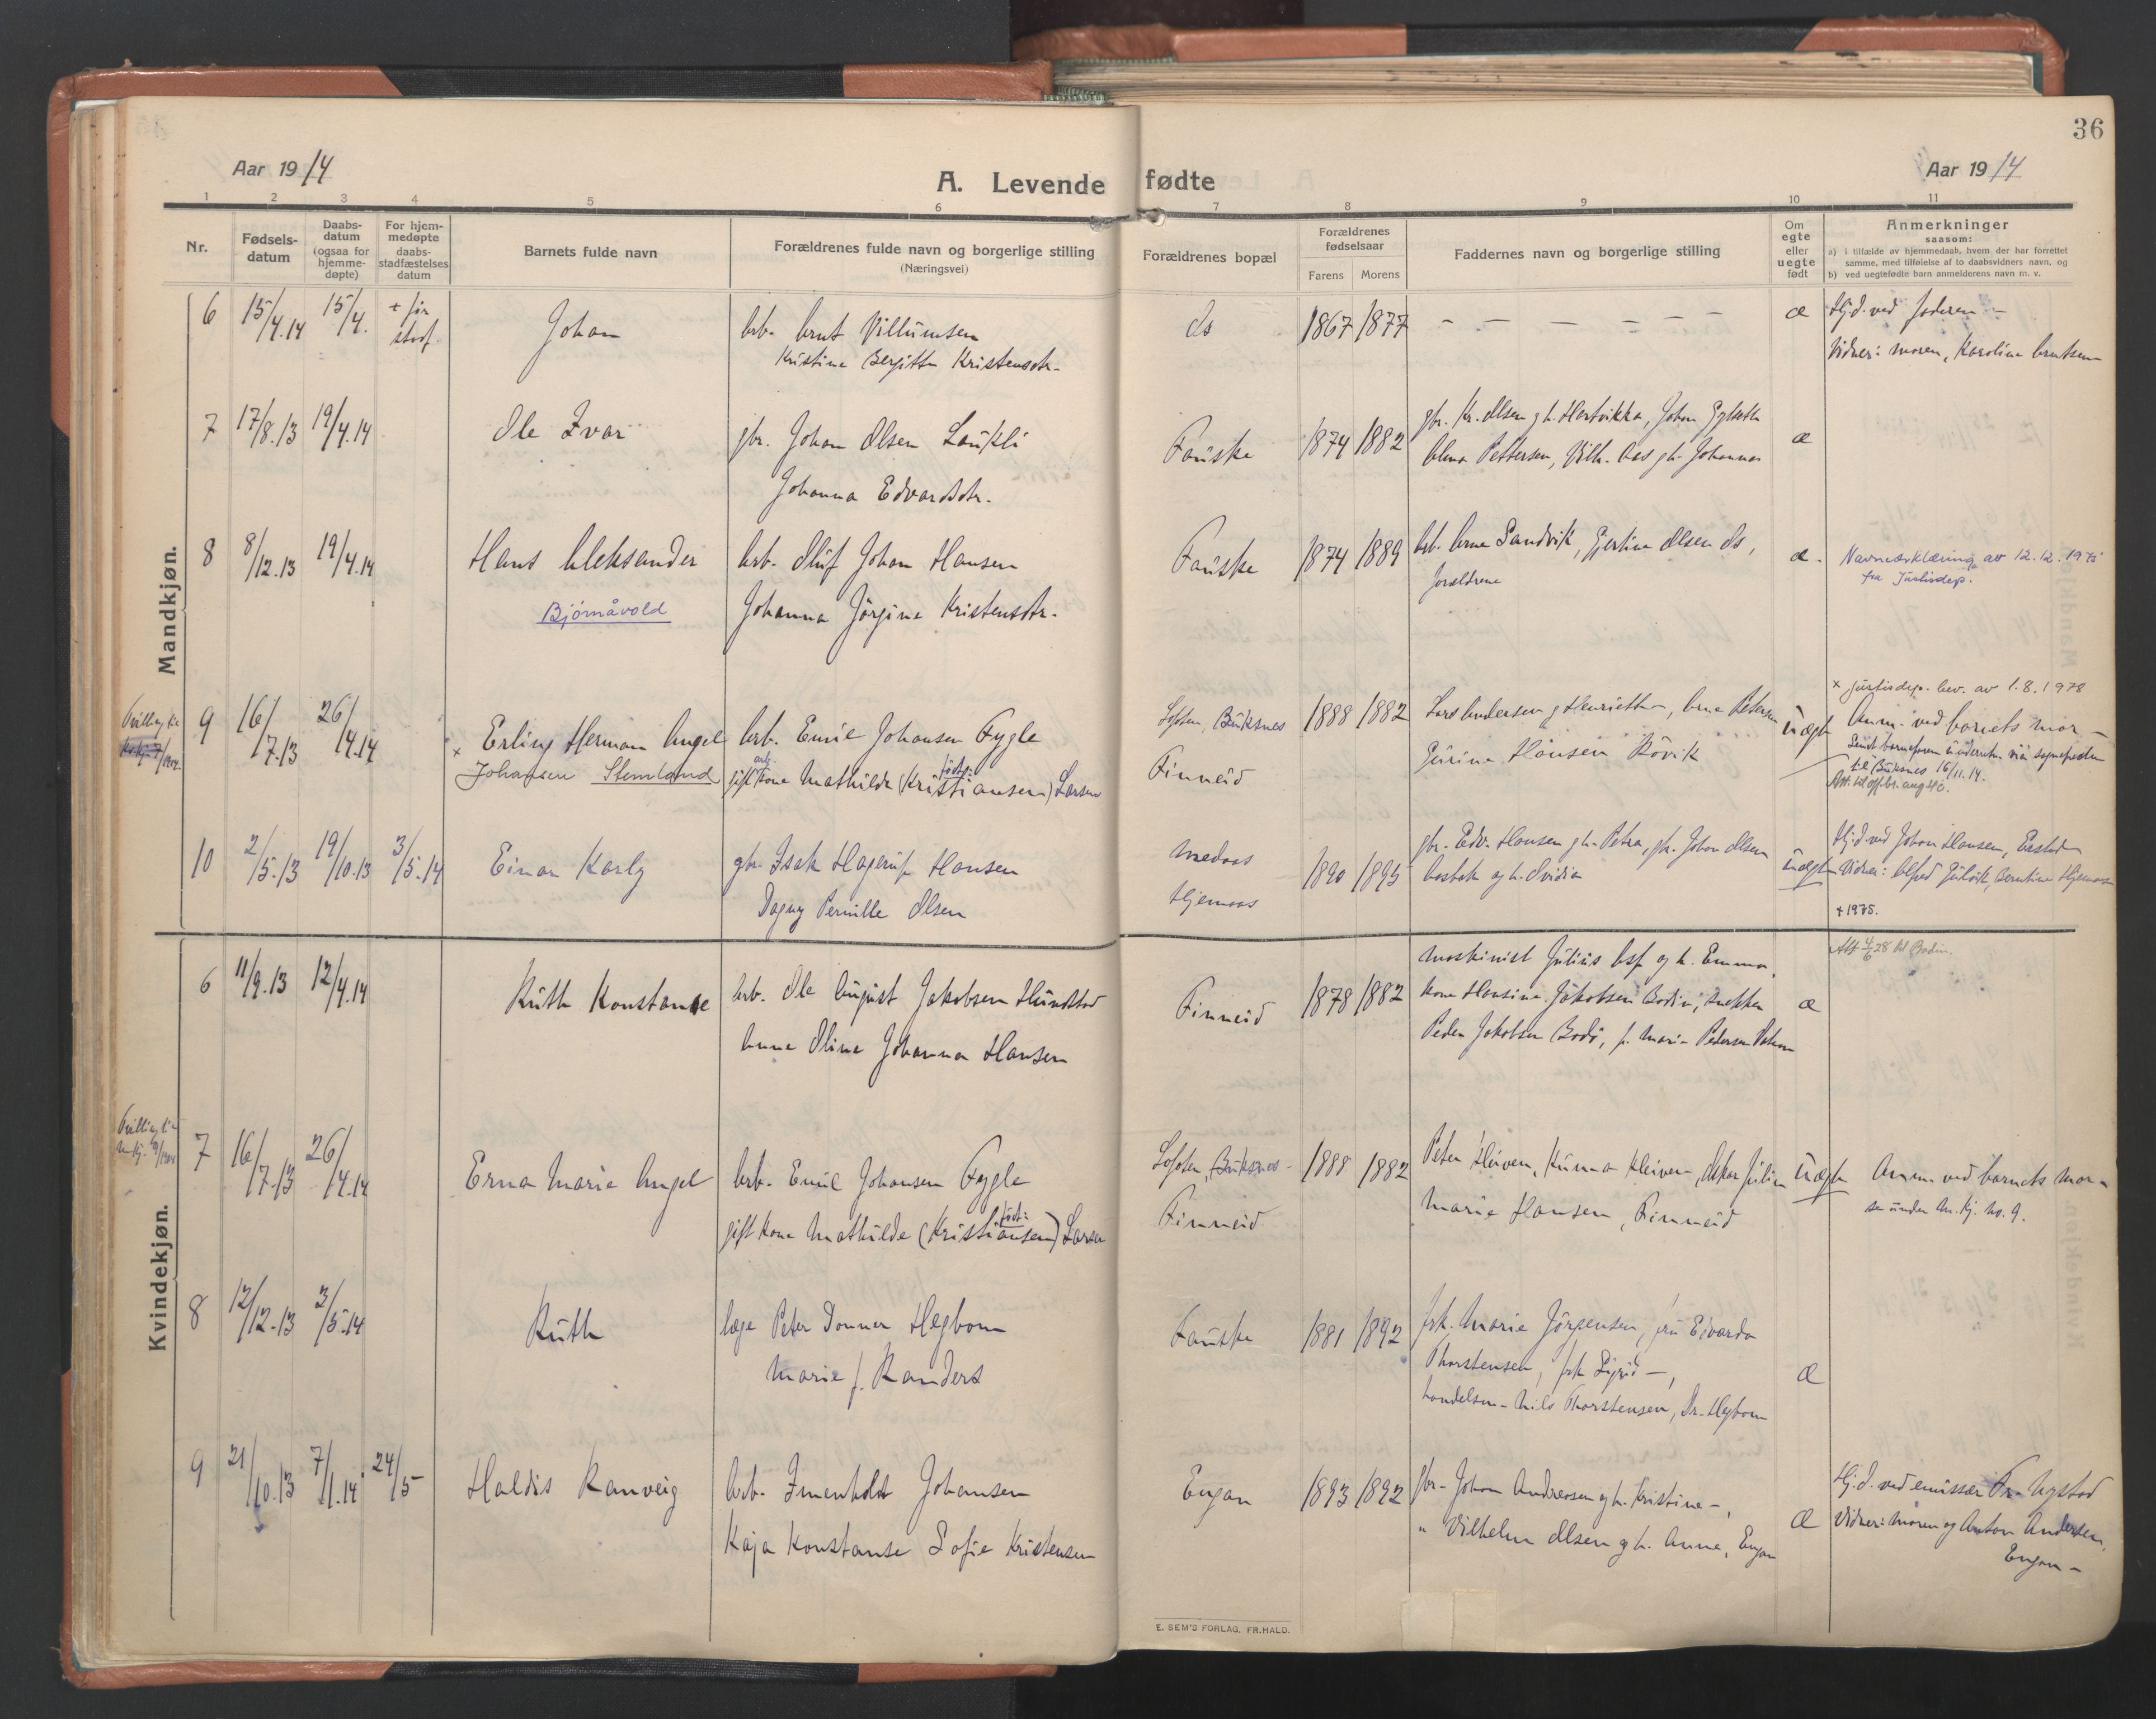 36
Aar 19 14
A. Levende fødte
Aar 19 14
1 2 3 4 5 6 7 8 9 10 11
Nr.
Fødsels-
datum
Daabs-
datum
(ogsaa for
hjemme-
døpte)
For hjem-
medøpte
daabs-
stadfæstelses
datum
Barnets fulde navn
Forældrenes fulde navn og borgerlige stilling
(Næringsvei)
Forældrenes bopæl
Forældrenes
fødselsaar
Farens Morens
Faddernes navn og borgerlige stilling
Om
egte
eller
uegte
født
Anmerkninger
saasom:
a) i tilfælde av hjemmedaab, hvem der har forrettet
samme, med tilføielse af to daabsvidners navn, og
b) ved uegtefødte barn anmelderens navn m. v.
Mandkjøn.
6 15/4.14 15/4. + før
stadf.
Johan
arb. Arnt Villumsen
Kristine Bergitte Kristensdtr.
ds 1867 1877 - - - - - - - æ
Hj.d. ved faderen -
Vidner: moren, Karoline Arntsen
7 17/8.13 19/4.14
Ole Ivar
gbr. Johan Olsen Laukli
Johanna Edvardsdtr.
Fauske 1874 1882
gbr. Kr. Olsen g h.
Alma Pettersen, Vilh. Aas g h. Johanna
æ
8 8/12.13 19/4.14
Hans Aleksander
Bjørnåvold
arb. Oluf Johan Hansen
Johanna Jörgine Kristensdtr.
Fauske 1874 1889
arb. Arne Sandvik, Gjertine Olsen ds,
forældrene
æ.
Navneerklæring av 12.12.1975
fra Justisdep.
9 16/7.13 26/4.14
x Erling Herman Angel
Johansen Stemland
arb. Emil Johansen Fygle
gift kone Mathilde (Kristiansen) født: Larsen
Lofoten, Buksnes
Finneid
1888 1882
Lars Andersen g Henriette, Arne Petersen
Gurine Hansen Røvik
uægte
x Justisdep. bev. av 1.8.1978
Anm. ved barnets mor -
til Buksnes 16/11.14.
10 2/5.13 19/10.13 3/5.14
Einar Karly
gbr. Isak Hagerup Hansen
Dagny Pernille Olsen
Medaas
Hjemaas
1890 1895
gbr. Edv. Hansen g h. Petra, gbr. Johan Olsen
og h.
uægte
Hj.d. ved Johan Hansen,
Vidner: Alfred
+ 1975.
Kvindekjøn.
6 11/9.13 12/4.14
Ruth Konstanse
arb. Ole August Jakobsen Hundstad
Anna Oline Johanna Hansen
Finneid 1878 1882
maskinist Julius Asp og h. Emma,
kone Hansine Jakobsen Bodin, snekker
Peder Jakobsen Bodø, f. Marie Pedersen
æ
Att 4/6 28 til Bodin.
7 16/7.13 26/4.14
Erna Marie Angel
arb. Emil Johansen Fygle
gift kone Mathilde (Kristiansen) født: Larsen
Lofoten, Buksnes -
Finneid
1888 1882
Peter Kleiven, Kunna Kleiven, Oskar Julin
Marie Hansen, Finneid
uægte
Anm. ved barnets mor -
se under M.kj. no. 9.
8 12/12.13 3/5.14
Ruth
læge Peter Donner Hegbom
Marie f. Randers
Fauske 1881 1892
frk. Marie Jörgensen, fru Edvarda
Thorstensen, frk Sigrid -,
handelsm. Nils Thorstensen, Dr. Hegbom
æ
9 21/10.13 7/1.14 24/5
Haldis Ranveig
arb. Imenholdt Johansen
Kaja Konstanse Sofie Kristensen
Engan 1893 1892
gbr. Johan Andreasen g h. Kristine -,
" Vilhelm Olsen g h. Anne, Engan
æ
Hj.d. ved emissær Fr. Nystad
Vidner: moren og Anton Andersen,
Engan -
E. SEM'S FORLAG. FR.HALD.